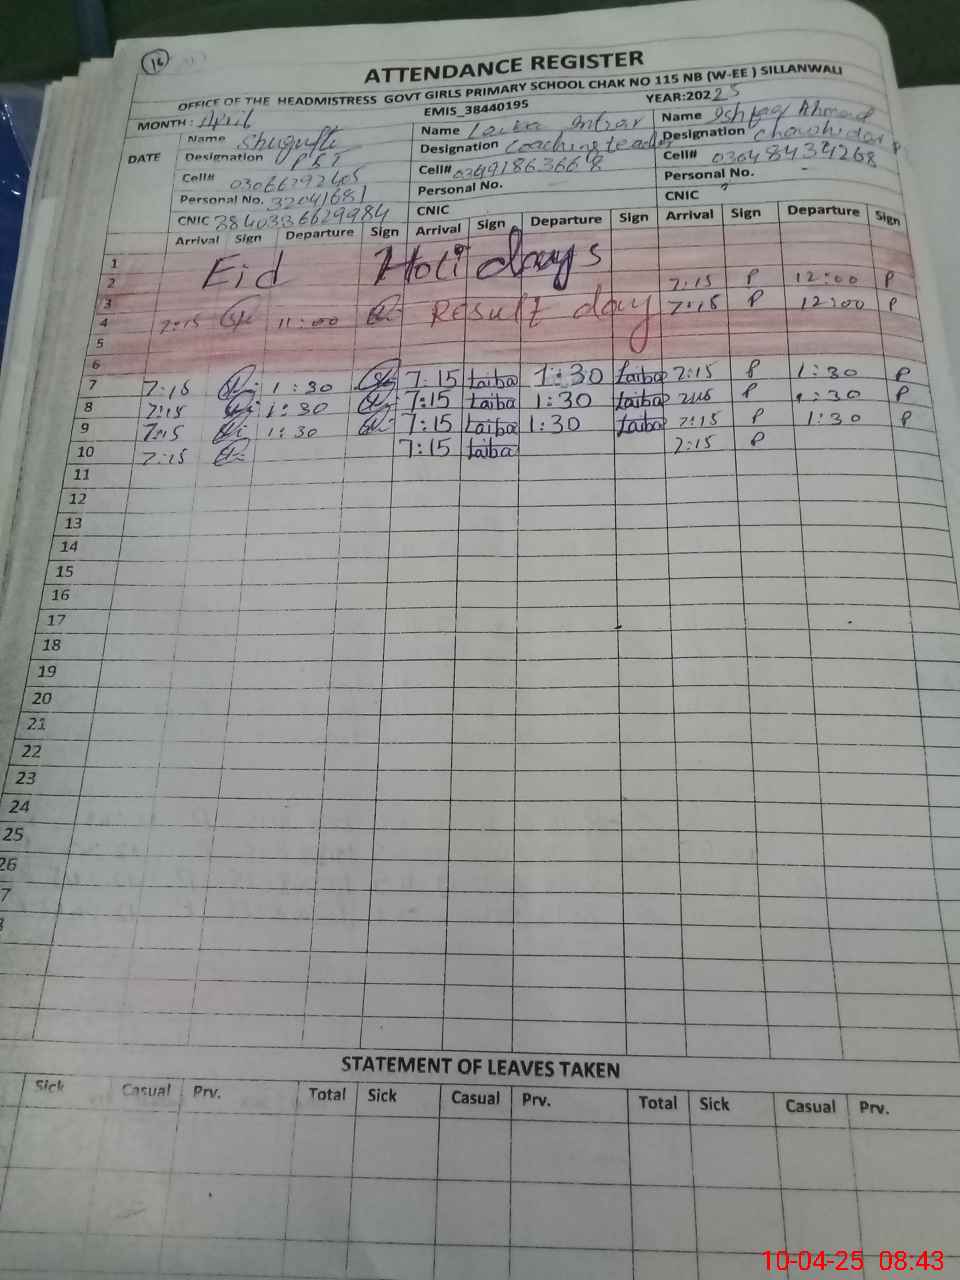 16
ATTENDANCE REGISTER
OFFICE OF THE HEADMISTRESS GOVT GIRLS PRIMARY SCHOOL CHAK NO 115 NB (W-EE ) SILLANWALI
EMIS_38440195
YEAR:20225
MONTH: April
DATE
Name Shugufta
Designation PST
Cell# 03066292405
Personal No. 32041681
CNIC 3840336629984
Name Laiba
Designation Coaching teacher
Cell# 03491863668
Personal No.
CNIC
Name Ishfaq Ahmad
Designation Chowkidar
Cell# 03048434268
Personal No.
CNIC
Arrival Sign Departure Sign Arrival Sign Departure Sign Arrival Sign Departure Sign
1
2 Eid Holidays
3 7:15 P 12:00 P
4 7:15 11:00 Result day 7:15 P 12:00 P
5
6
7 7:15 1:30 7:15 Laiba 1:30 Laiba 7:15 P 1:30 P
8 7:15 1:30 7:15 Laiba 1:30 Laiba P 1:30 P
9 7:15 1:30 7:15 Laiba 1:30 Laiba 7:15 P 1:30 P
10 7:15 7:15 Laiba 7:15 P
11
12
13
14
15
16
17
18
19
20
21
22
23
24
25
26
7
STATEMENT OF LEAVES TAKEN
Sick Casual Prv. Total Sick Casual Prv. Total Sick Casual Prv.
10-04-25 08:43